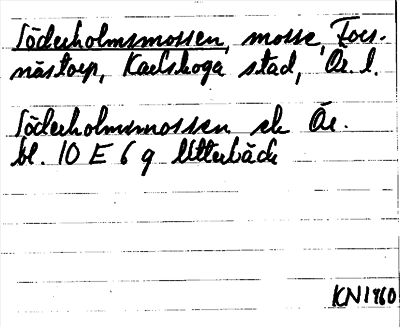 Söderholmsmossen, mosse, Fors-
nästorp, Karlskoga stad, Ör. l.
Söderholmsmossen ek Ör.
bl. 10 E 6 g Utterbäck
KN1960